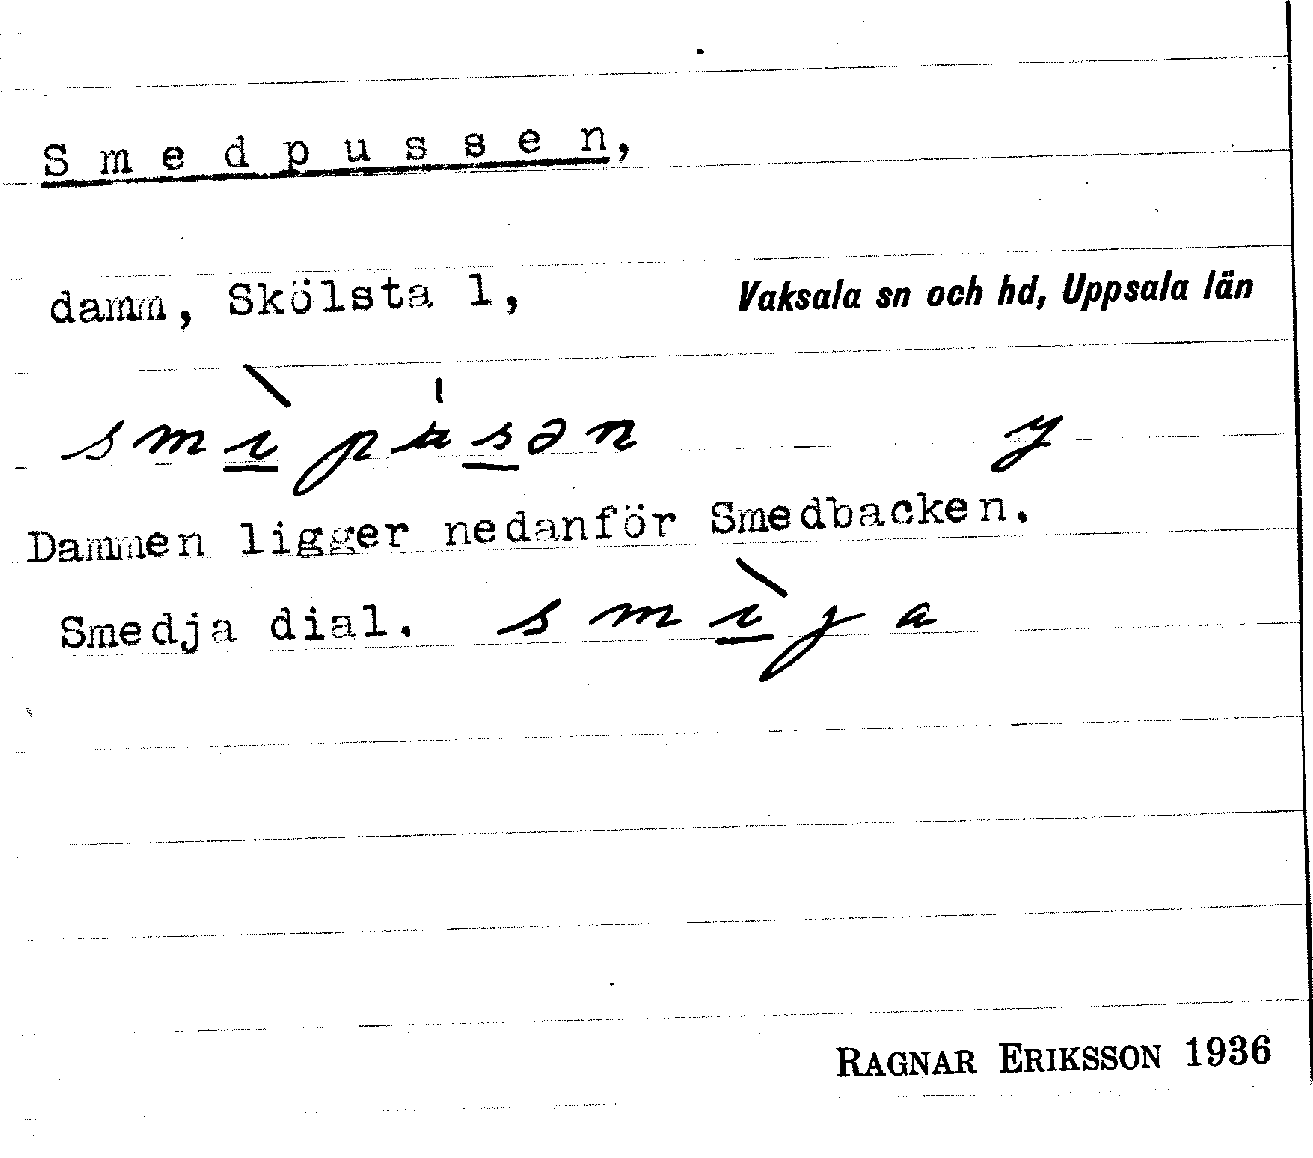 Smedpussen,
damm, Skölsta 1, Vaksala sn och hd, Uppsala län
smı̀pʉ̍sən y
Dammen ligger nedanför Smedbacken.
Smedja dial. smı̀ja
RAGNAR ERIKSSON 1936